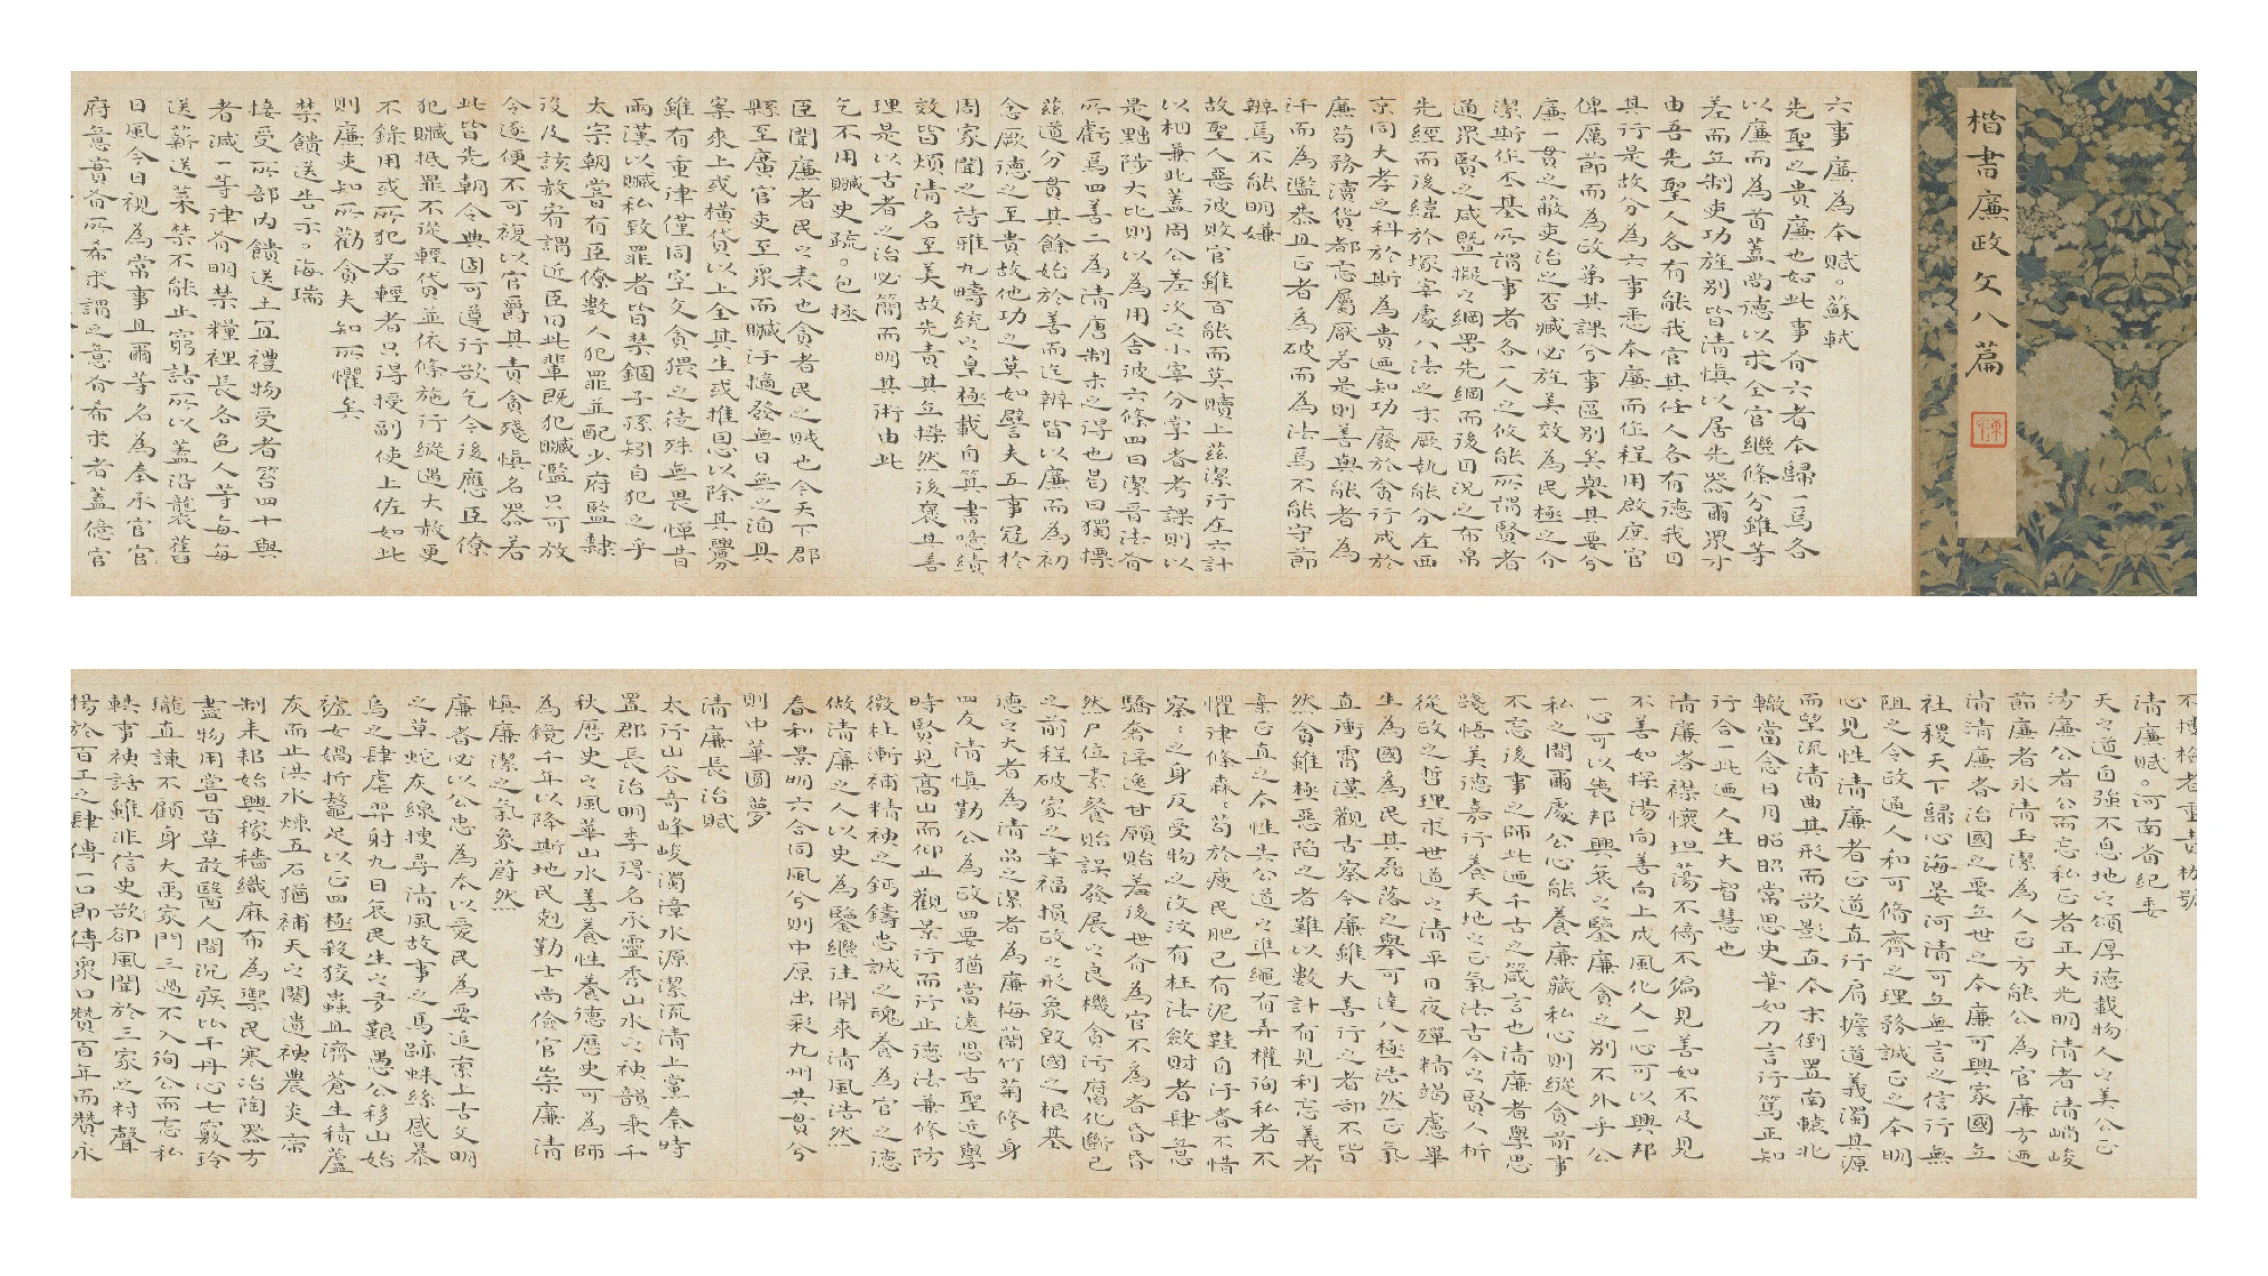 楷書廉政文八篇
六事廉為本賦。蘇軾
先聖之貴廉也如此事有六者本歸一焉各
以廉而為首蓋尚德以求全官繼條分雖等
差而立制吏功旌別皆清慎以居先器爾眾才
由吾先聖人各有能我官其任人各有德我目
其行是故分為六事悉本廉而作程用啟庶官
俾厲節而為政第其課兮事區別矣舉其要兮
廉一貫之蔽吏治之否臧必旌美效為民極之介
潔斯作丕基所謂事者各一人之攸能所謂賢者
通眾賢之咸暨擬之綱罟先綱而後目況之布帛
先經而後緯於塚宰處八法之末厥執能分在西
京同大孝之科於斯為貴迺知功廢於貪行成於
廉苟務瀆貨都忘屬厭若是則善與能者為
汗而為濫恭且正者為破而為法焉不能守節
辨焉不能明嫌
故聖人惡彼敗官雖百能而莫贖上茲潔行在六計
以相兼此蓋周公差次之小宰分掌者考課則以
是黜陟大比則以為用舍彼六條四曰潔晉法有
所虧焉四善二為清唐制未之得也曷曰獨摽
茲道分貫其餘始於善而迄辨皆以廉而為初
念厥德之至貴故他功之莫如譬夫五事冠於
周家聞之詩雅九疇統之皇極載自箕書噫績
效皆煩清名至美故先責其立操然後褒其善
理是以古者之治必簡而明其術由此
乞不用贓吏疏。包拯
臣聞廉者民之表也貪者民之賊也今天下郡
縣至廣官吏至眾而贓汙擿發無日無之洎具
案來上或橫貸以上全其生或推恩以除其釁
雖有重律僅同空文貪猥之徒殊無畏憚昔
兩漢以贓私致罪者皆禁錮子孫矧自犯之乎
太宗朝嘗有臣僚數人犯罪並配少府監隸
役及該赦宥謂近臣曰此輩既犯贓濫只可放
令逐便不可複以官爵其責貪殘慎名器若
此皆先朝令典固可遵行欲乞今後應臣僚
犯贓抵罪不從輕貸並依條施行縱遇大赦更
不錄用或所犯若輕者只得授副使上佐如此
則廉吏知所勸貪夫知所懼矣
禁饋送告示。海瑞
接受所部內饋送土宜禮物受者笞四十與
者減一等律有明禁糧裡長各色人等每每
送薪送菜禁不能止窮詰所以蓋沿襲舊
日風今日視為常事且爾等名為奉承官官
府意貴有所希求謂之意有希求者蓋億官
清廉賦。河南省紀委
天之道自強不息地之頌厚德載物人之美公正
清廉公者公而忘私正者正大光明清者清嵴峻
節廉者永清玉潔為人正方能公為官廉方迺
清清廉者治國之要立世之本廉可興家國立
社稷天下歸心海晏河清可立無言之信行無
阻之令政通人和可脩齊之理務誠正之本明
心見性清廉者正道直行肩擔道義濁其源
而望流清曲其形而欲影直本末倒置南轅北
轍當念日月昭昭常思史筆如刀言行篤正知
行合一此迺人生大智慧也
清廉者襟懷坦蕩不倚不偏見善如不及見
不善如探湯向善向上成風化人一心可以興邦
一心可以喪邦興衰之鑒廉貪之別不外乎公
私之間爾處公心能養廉藏私心則縱貪前事
不忘後事之師此迺千古之箴言也清廉者學思
踐悟美德嘉行養天地之正氣法古今之賢人析
從政之哲理求世道之清平日夜殫精竭慮畢
生為國為民其磊落之舉可達八極浩然正氣
直衝霄漢觀古察今廉雖大善行之者卻不皆
然貪雖極惡陷之者難以數計有見利忘義者
棄正直之本性失公道之準繩有弄權徇私者不
懼律條森森苟於瘦民肥己有泥鞋自汙者不惜
察察之身反受物之汶汶有枉法斂財者肆意
驕奢淫逸甘願貽羞後世有為官不為者昏昏
然尸位素餐貽誤發展之良機貪污腐化斷己
之前程破家之幸福損政之形象毀國之根基
德之大者為清品之潔者為廉梅蘭竹菊修身
四友清慎勤公為政四要猶當遠思古聖近學
時賢見高山而仰止觀景行而行止德法兼修防
微杜漸補精神之鈣鑄忠誠之魂養為官之德
做清廉之人以史為鑒繼往開來清風浩然
春和景明六合同風兮則中原出彩九州共貫兮
則中華圓夢
清廉長治賦
太行山谷奇峰峻濁漳水源潔流清上黨秦時
置郡長治明季得名承靈秀山水之神韻秉千
秋歷史之風華山水善養性養德歷史可為師
為鏡千年以降斯地民剋勤士尚儉官崇廉清
慎廉潔之氣象蔚然
廉者必以公忠為本以愛民為要追索上古文明
之草蛇灰線搜尋清風故事之馬跡蛛絲感暴
烏之肆虐羿射九日哀民生之多艱愚公移山始
墟女媧折鼇足以正四極殺狡蟲且濟蒼生積蘆
灰而止洪水煉五石猶補天之闕遺神農炎帝
制耒耜始興稼穡織麻布為禦民寒冶陶器方
盡物用嘗百草敢醫人間沉疾比干丹心七竅玲
瓏直諫不顧身大禹家門三過不入徇公而忘私
軼事神話雖非信史欲卻風聞於三家之村聲
揚於百工之肆傳一口即傳眾口贊百年而贊永